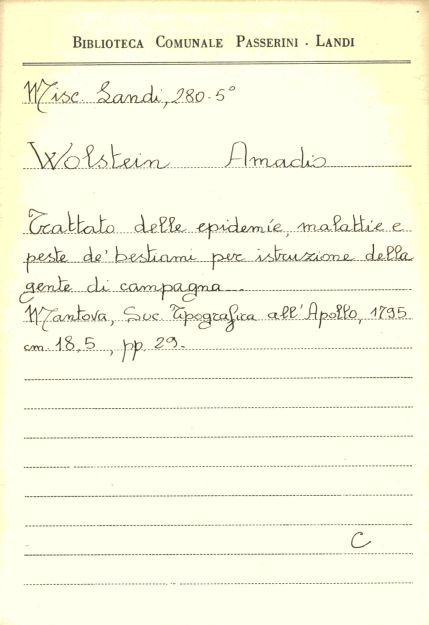 BIBLIOTECA COMUNALE PASSERINI - LANDI
Misc. Landi, 280-5°
Wolstein Amadio
Trattato delle epidemíe, malattie e
peste de' bestiami per istruzione della
gente di campagna...
Mantova, Soc. Tipografica all'Apollo, 1795
cm. 18,5, pp. 29.
C